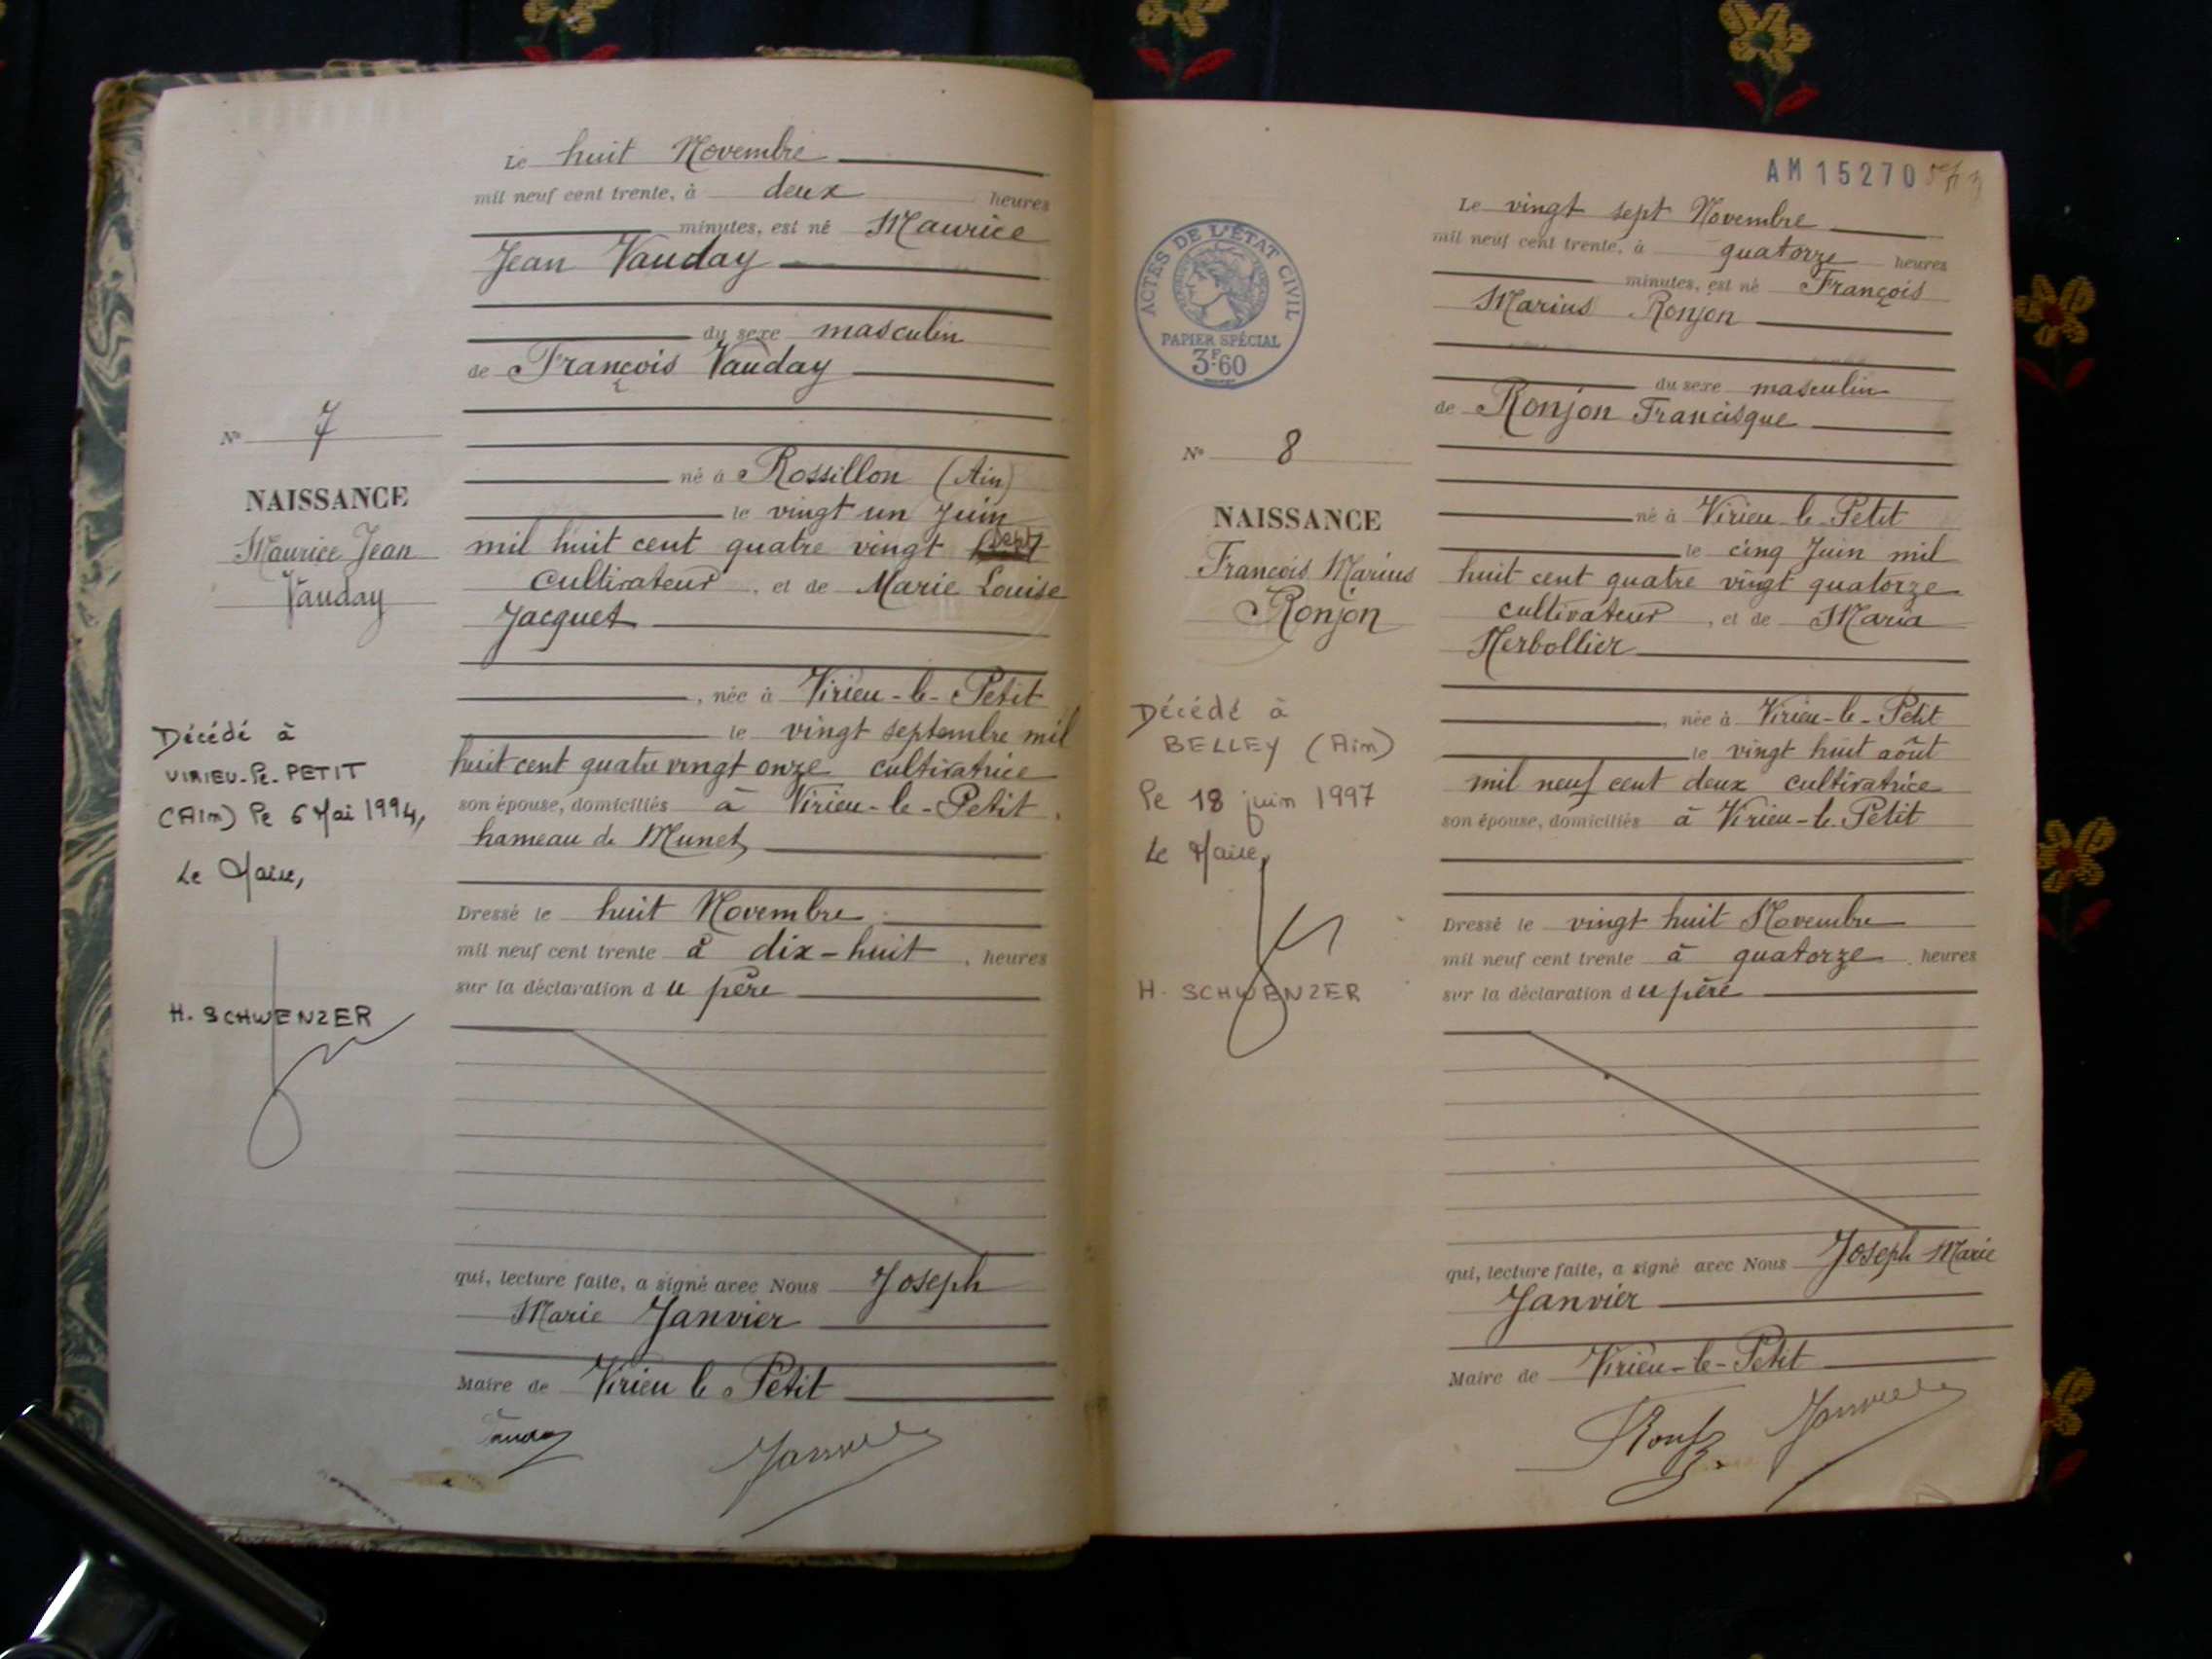 Le huit Novembre
mil neuf cent trente, à deux heures
minutes, est né Maurice
Jean Vauday
du sexe masculin
de François Vauday
né à Rossillon (Ain)
le vingt un Juin
mil huit cent quatre vingt sept
cultivateur, et de Marie Louise
Jacquet
, née à Virieu-le-Petit
le vingt septembre mil
huit cent quatre vingt onze cultivatrice
son épouse, domiciliés à Virieu-le-Petit,
hameau de Munet
Dressé le huit Novembre
mil neuf cent trente à dix-huit, heures
sur la déclaration du père
qui, lecture faite, a signé avec Nous Joseph
Marie Janvier
Maire de Virieu le Petit
Vauday
Janvier
N° 7
NAISSANCE
Maurice Jean
Vauday
Décédé à
VIRIEU-le-PETIT
(Ain) le 6 Mai 1994,
Le Maire,
H. SCHWENZER
AM 15270
ACTES DE L'ÉTAT CIVIL
PAPIER SPÉCIAL
3F60
Le vingt sept Novembre
mil neuf cent trente, à quatorze heures
minutes, est né François
Marius Ronjon
du sexe masculin
de Ronjon Francisque
né à Virieu-le-Petit
le cinq Juin mil
huit cent quatre vingt quatorze
cultivateur, et de Maria
Herbollier
, née à Virieu-le-Petit
le vingt huit août
mil neuf cent deux cultivatrice
son épouse, domiciliés à Virieu-le-Petit
Dressé le vingt huit Novembre
mil neuf cent trente à quatorze, heures
sur la déclaration du père
qui, lecture faite, a signé avec Nous Joseph Marie
Janvier
Maire de Virieu-le-Petit
Janvier
N° 8
NAISSANCE
François Marius
Ronjon
Décédé à
BELLEY (Ain)
le 18 juin 1997
Le Maire,
H. SCHWENZER